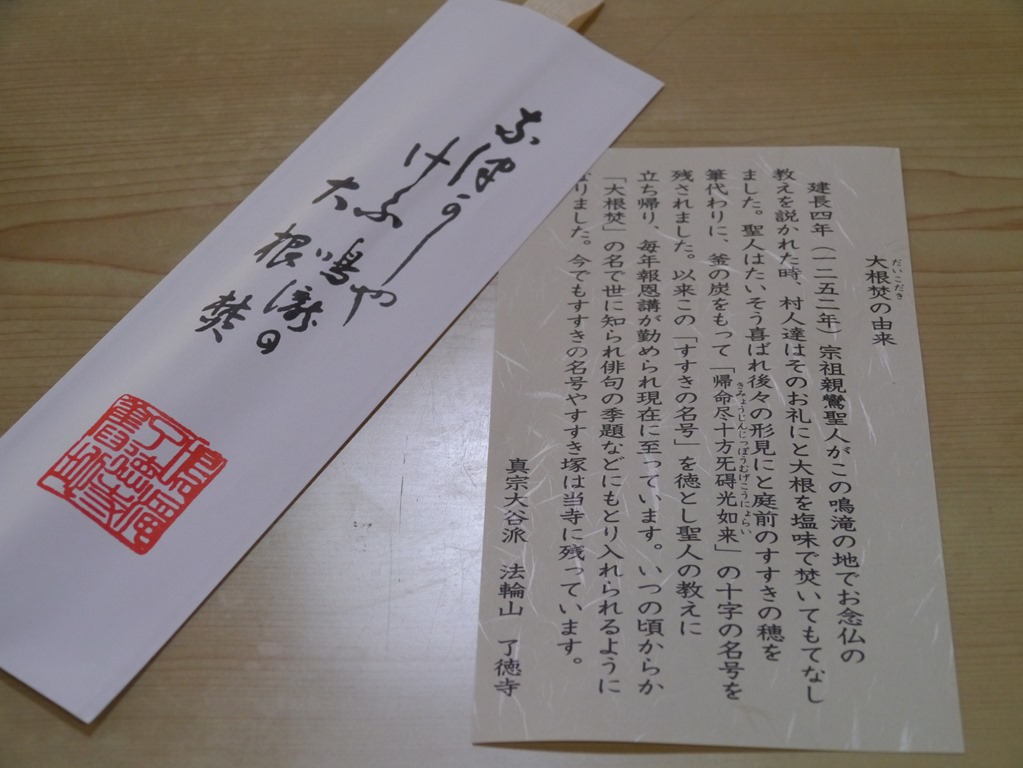 けふ鳴瀧の
大根焚
だいこだき
大根焚の由来
建長四年（一二五二年）宗祖親鸞聖人がこの鳴滝の地でお念仏の
教えを説かれた時、村人達はそのお礼にと大根を塩味で焚いてもてなし
ました。聖人はたいそう喜ばれ後々の形見にと庭前のすすきの穂を
きみょうじんじっぽうむげこうにょらい
筆代わりに、釜の炭をもって「帰命尽十方旡碍光如来」の十字の名号を
残されました。以来この「すすきの名号」を徳とし聖人の教えに
立ち帰り、毎年報恩講が勤められ現在に至っています。いつの頃からか
「大根焚」の名で世に知られ俳句の季題などにもとり入れられるように
なりました。今でもすすきの名号やすすき塚は当寺に残っています。
真宗大谷派　法輪山　了徳寺